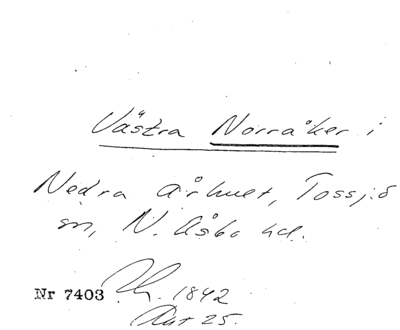 Västra Norråker i
Nedra århult, Tossjö
sn, N. Åsbo hd.
Nr 7403 1842
Akt 25.